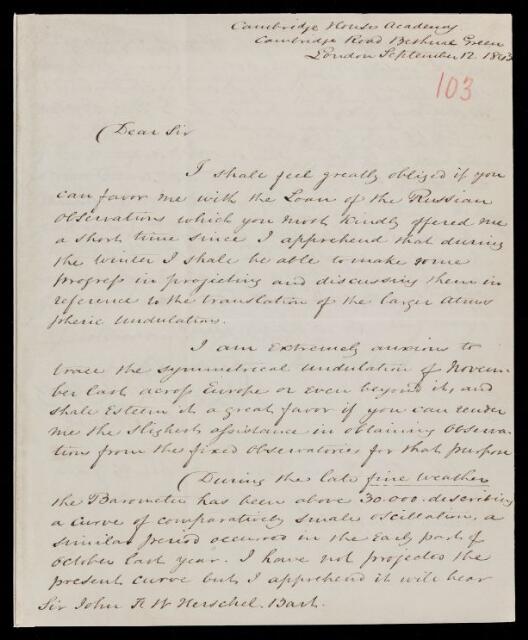 Cambridge House Academy
Cambridge Road Bethnal Green
London September 12 1843
103
Dear Sir
I shall feel greatly obliged if you
can favor me with the Loan of the Russian
Observations which you most kindly offered me
a short time since I apprehend that during
the Winter I shall be able to make some
progress in projecting and discussing them in
reference to the translation of the larger Atmos
pheric Undulations.
I am Extremely anxious to
trace the symmetrical undulation of Novem-
ber last across Europe or even beyond it, and
shall Esteem it a great favor if you can render
me the slightest assistance in obtaining Observa
tions from the fixed Observatories for that purpose
During the late fine weather
the Barometer has been above 30.000. describing
a curve of comparatively small oscillation, a
similar period occurred in the Early part of
October last year. I have not projected the
present curve but I apprehend it will bear
Sir John F W Herschel. Bart.